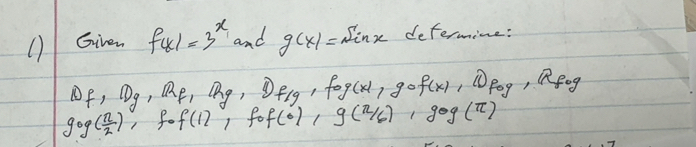 1) Given f(x) = 3^x and g(x) = Sin x determine:
Df, Dg, Rf, Rg, Df/g, fog(x), gof(x), Dfog, Rfog
gog(π/2), fof(1), fof(0), g(π/6), gog(π)